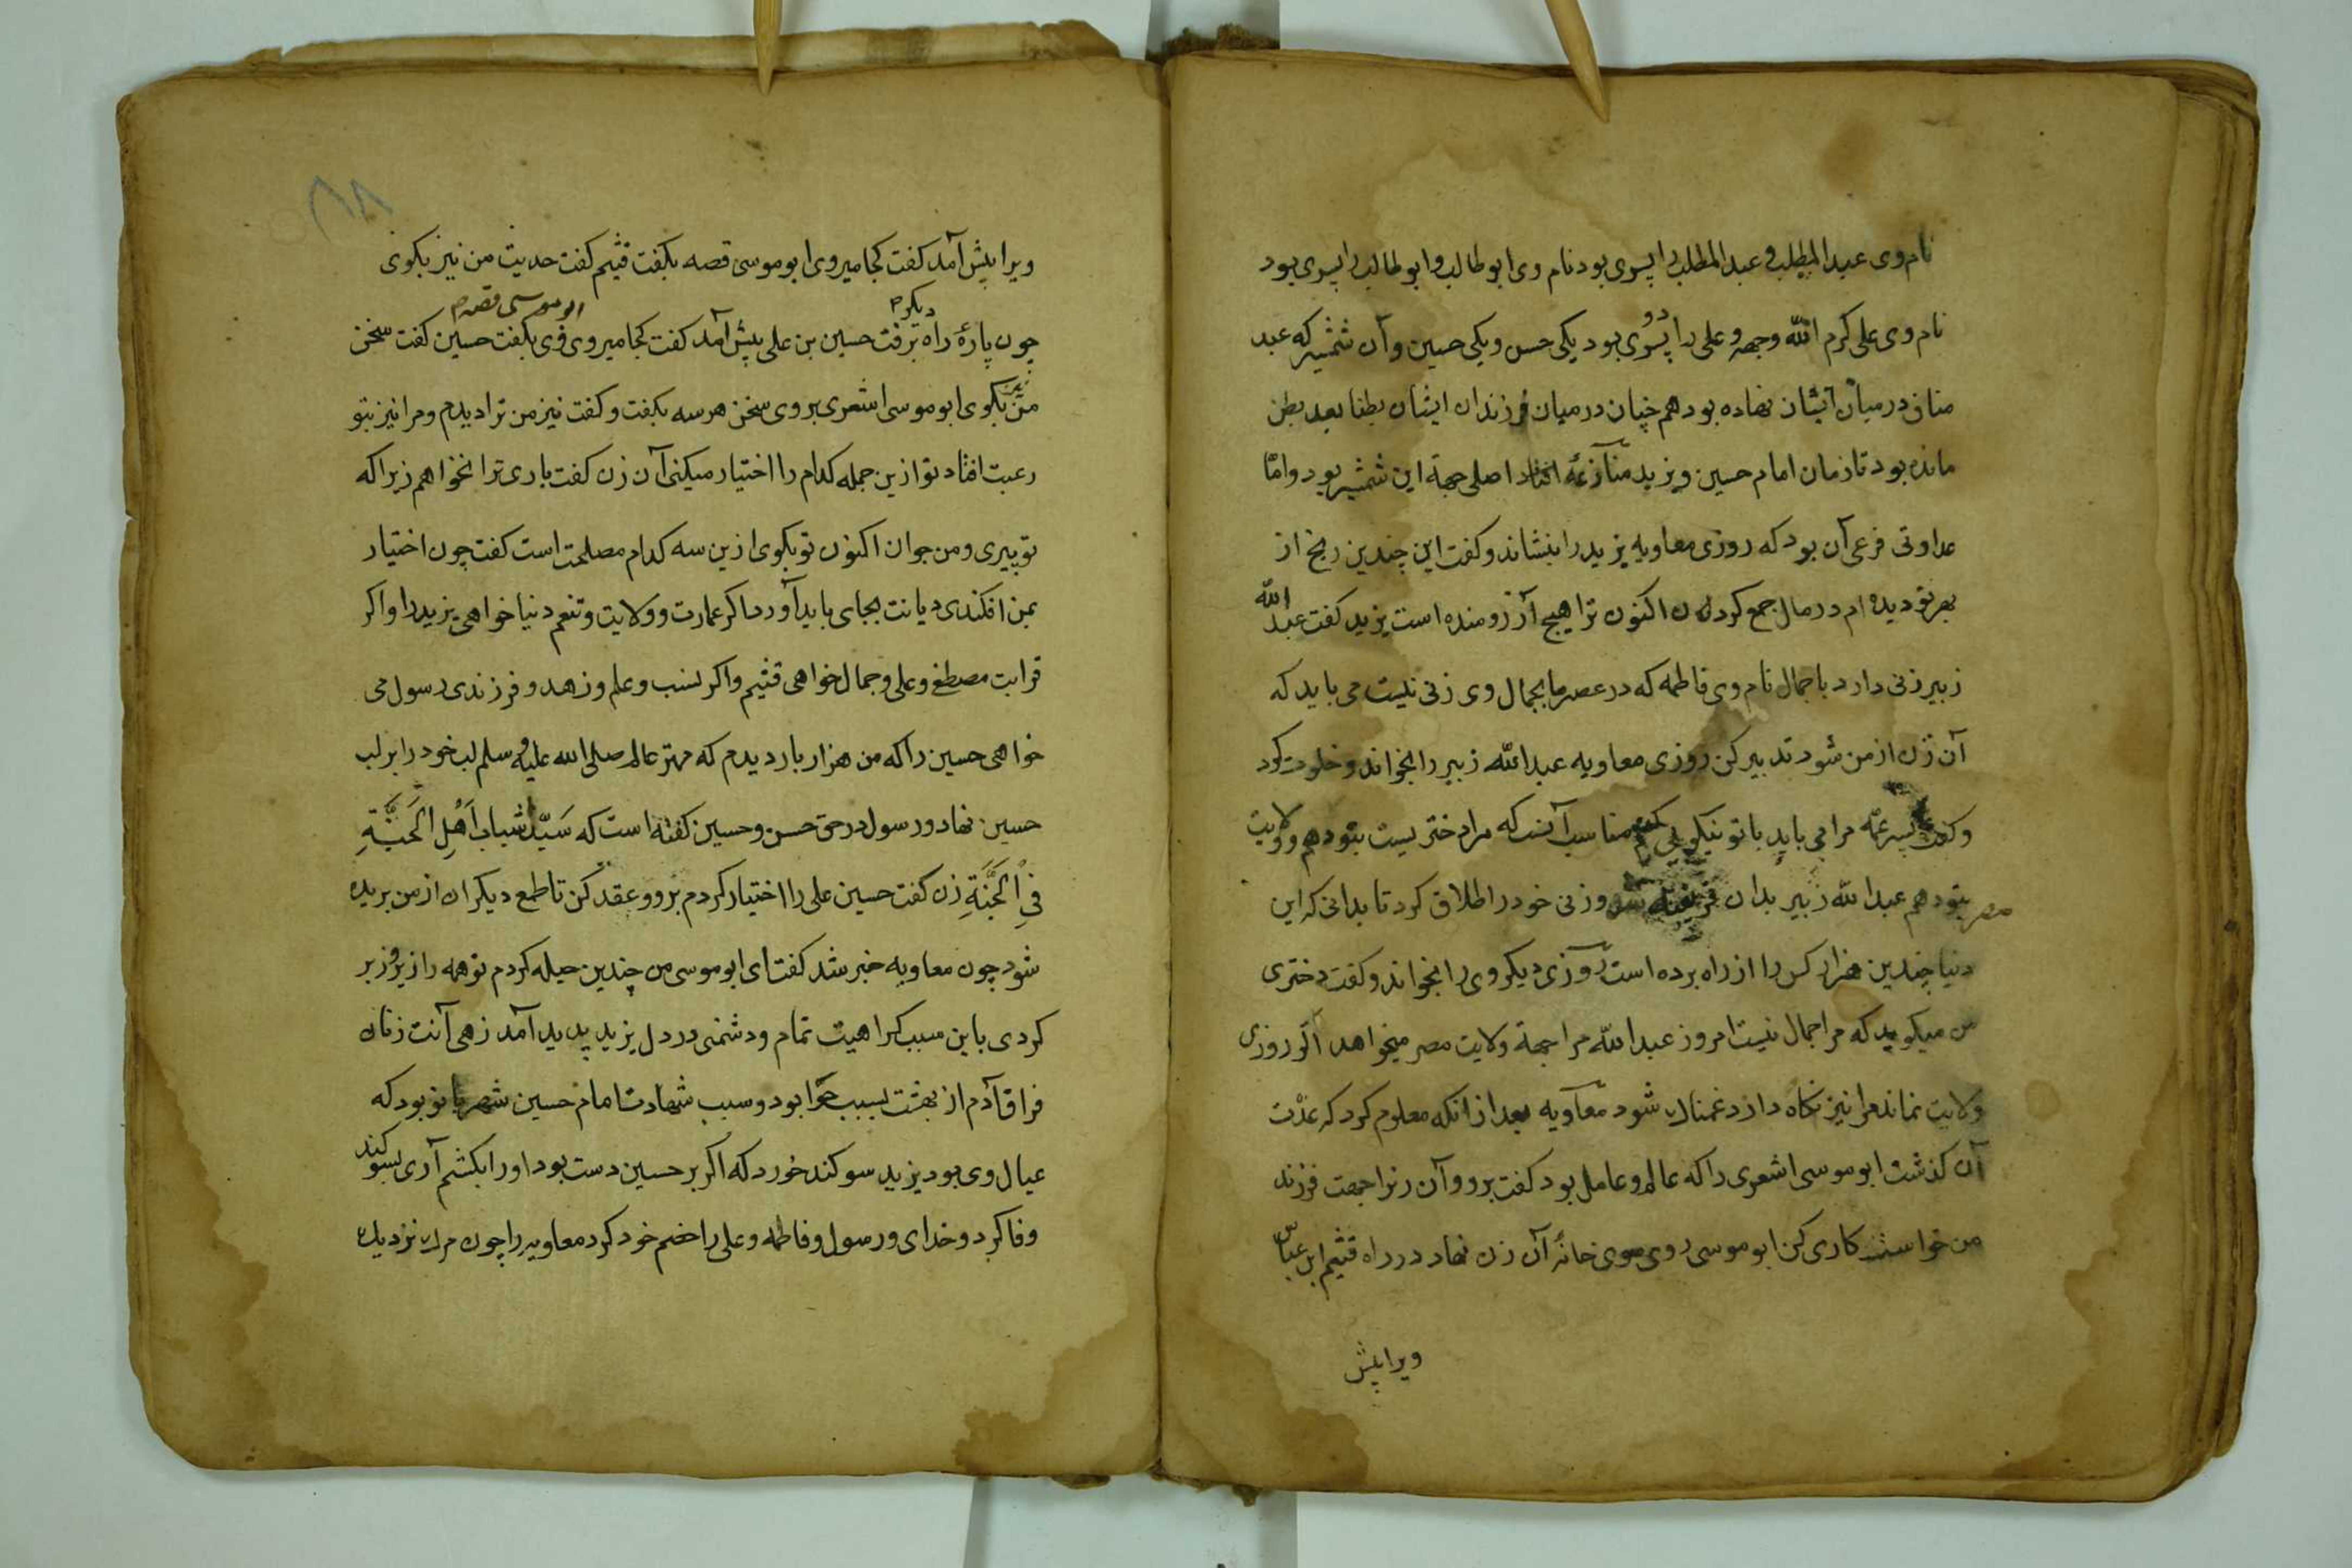 نام وی عبد المطلب و عبد المطلب را پسری بود نام وی ابو طالب و ابو طالب را پسری بود
نام وی علی کرم الله وجهه و علی را دو پسری بود یکی حسن و یکی حسین و آن شمشیر که عبد
مناف درمیان ایشان نهاده بود هم چنان درمیان فرزندان ایشان بطنا بعد بطن
مانده بود تا زمان امام حسین و یزید منازعة افتاد اصلی جهة این شمشیر بود و امّا
عداوتی فرعی آن بود که روزی معاویه یزید را بنشاند و کفت این چندین رنج از
بهر تو دیده ام در مال جمع کردن اکنون ترا هیچ آرزو مانده است یزید کفت عبد الله
زبیر زنی دارد با جمال نام وی فاطمه که در عصر ما بجمال وی زنی نیست می باید که
آن زن از من شود تدبیر کن روزی معاویه عبد الله زبیر را بخواند و خلوت کرد
و کفت پسر عمّه مرا می باید با تو نیکویی کنم مناسب آنست که مرا دختریست بتو دهم و ولایت
مصر بتو دهم عبد الله زبیر بدان فریفته شد و زنی خود را طلاق کرد تا بدانی که این
دنیا چندین هزار کس را از راه برده است روزی دیکر وی را بخواند و کفت دختری
من میکوید که مرا جمال نیست امروز عبد الله مرا جهة ولایت مصر میخواهد اکر روزی
ولایت نماند مرا نیز نکاه دارد غمناک شود معاویه بعد از انکه معلوم کرد که عدّت
آن کذشت ابو موسی اشعری را که عالم و عامل بود کفت برو و آن زنرا جهت فرزند
من خواستکاری کن ابو موسی روی سوی خانهٔ آن زن نهاد در راه قثیم ابن عباس
ویرا پیش
ویرا پیش آمد کفت کجا میروی ابو موسی قصه بکفت قثیم کفت حدیث من نیز بکوی
دیکر
ابو موسی قصه
چون پارهٔ راه برفت حسین بن علی پیش آمد کفت کجا میروی وی بکفت حسین کفت سخن
من نیز بکوی ابو موسی اشعری بروی سخن هر سه بکفت و کفت نیز من ترا دیدم و مرا نیز بتو
رغبت افتاد تو ازین جمله کدام را اختیار میکنی آن زن کفت باری ترا نخواهم زیرا که
تو پیری و من جوان اکنون تو بکوی ازین سه کدام مصلحت است کفت چون اختیار
بمن افکندی دیانت بجای باید آورد اکر عمارت و ولایت و تنعم دنیا خواهی یزید را و اکر
قرابت مصطفی و علی و جمال خواهی قثیم و اکر نسب و علم و زهد و فرزندی رسول می
خواهی حسین را که من هزار بار دیدم که مهتر عالم صلی الله علیه و سلم لب خود را بر لب
حسین نهاد و رسول در حق حسن و حسین کفته است که سَیّدا شباب اَهْلِ الجَنَّةِ
فِی الْجَنَّةِ زن کفت حسین علی را اختیار کردم برو و عقد کن تا طمع دیکران از من بریده
شود چون معاویه خبر شد کفت ای ابو موسی من چندین حیله کردم تو همه را زیر و زبر
کردی باین سبب کراهیت تمام و دشمنی در دل یزید پدید آمد زهی آفت زنان
فراق آدم از بهشت بسبب حوّا بود و سبب شهادت امام حسین شهربانو بود که
عیال وی بود یزید سوکند خورد که اکر بر حسین دست بود او را بکشم آری بسوکند
وفا کرد و خدای و رسول و فاطمه و علی را خصم خود کرد معاویه را چون مرک نزدیک